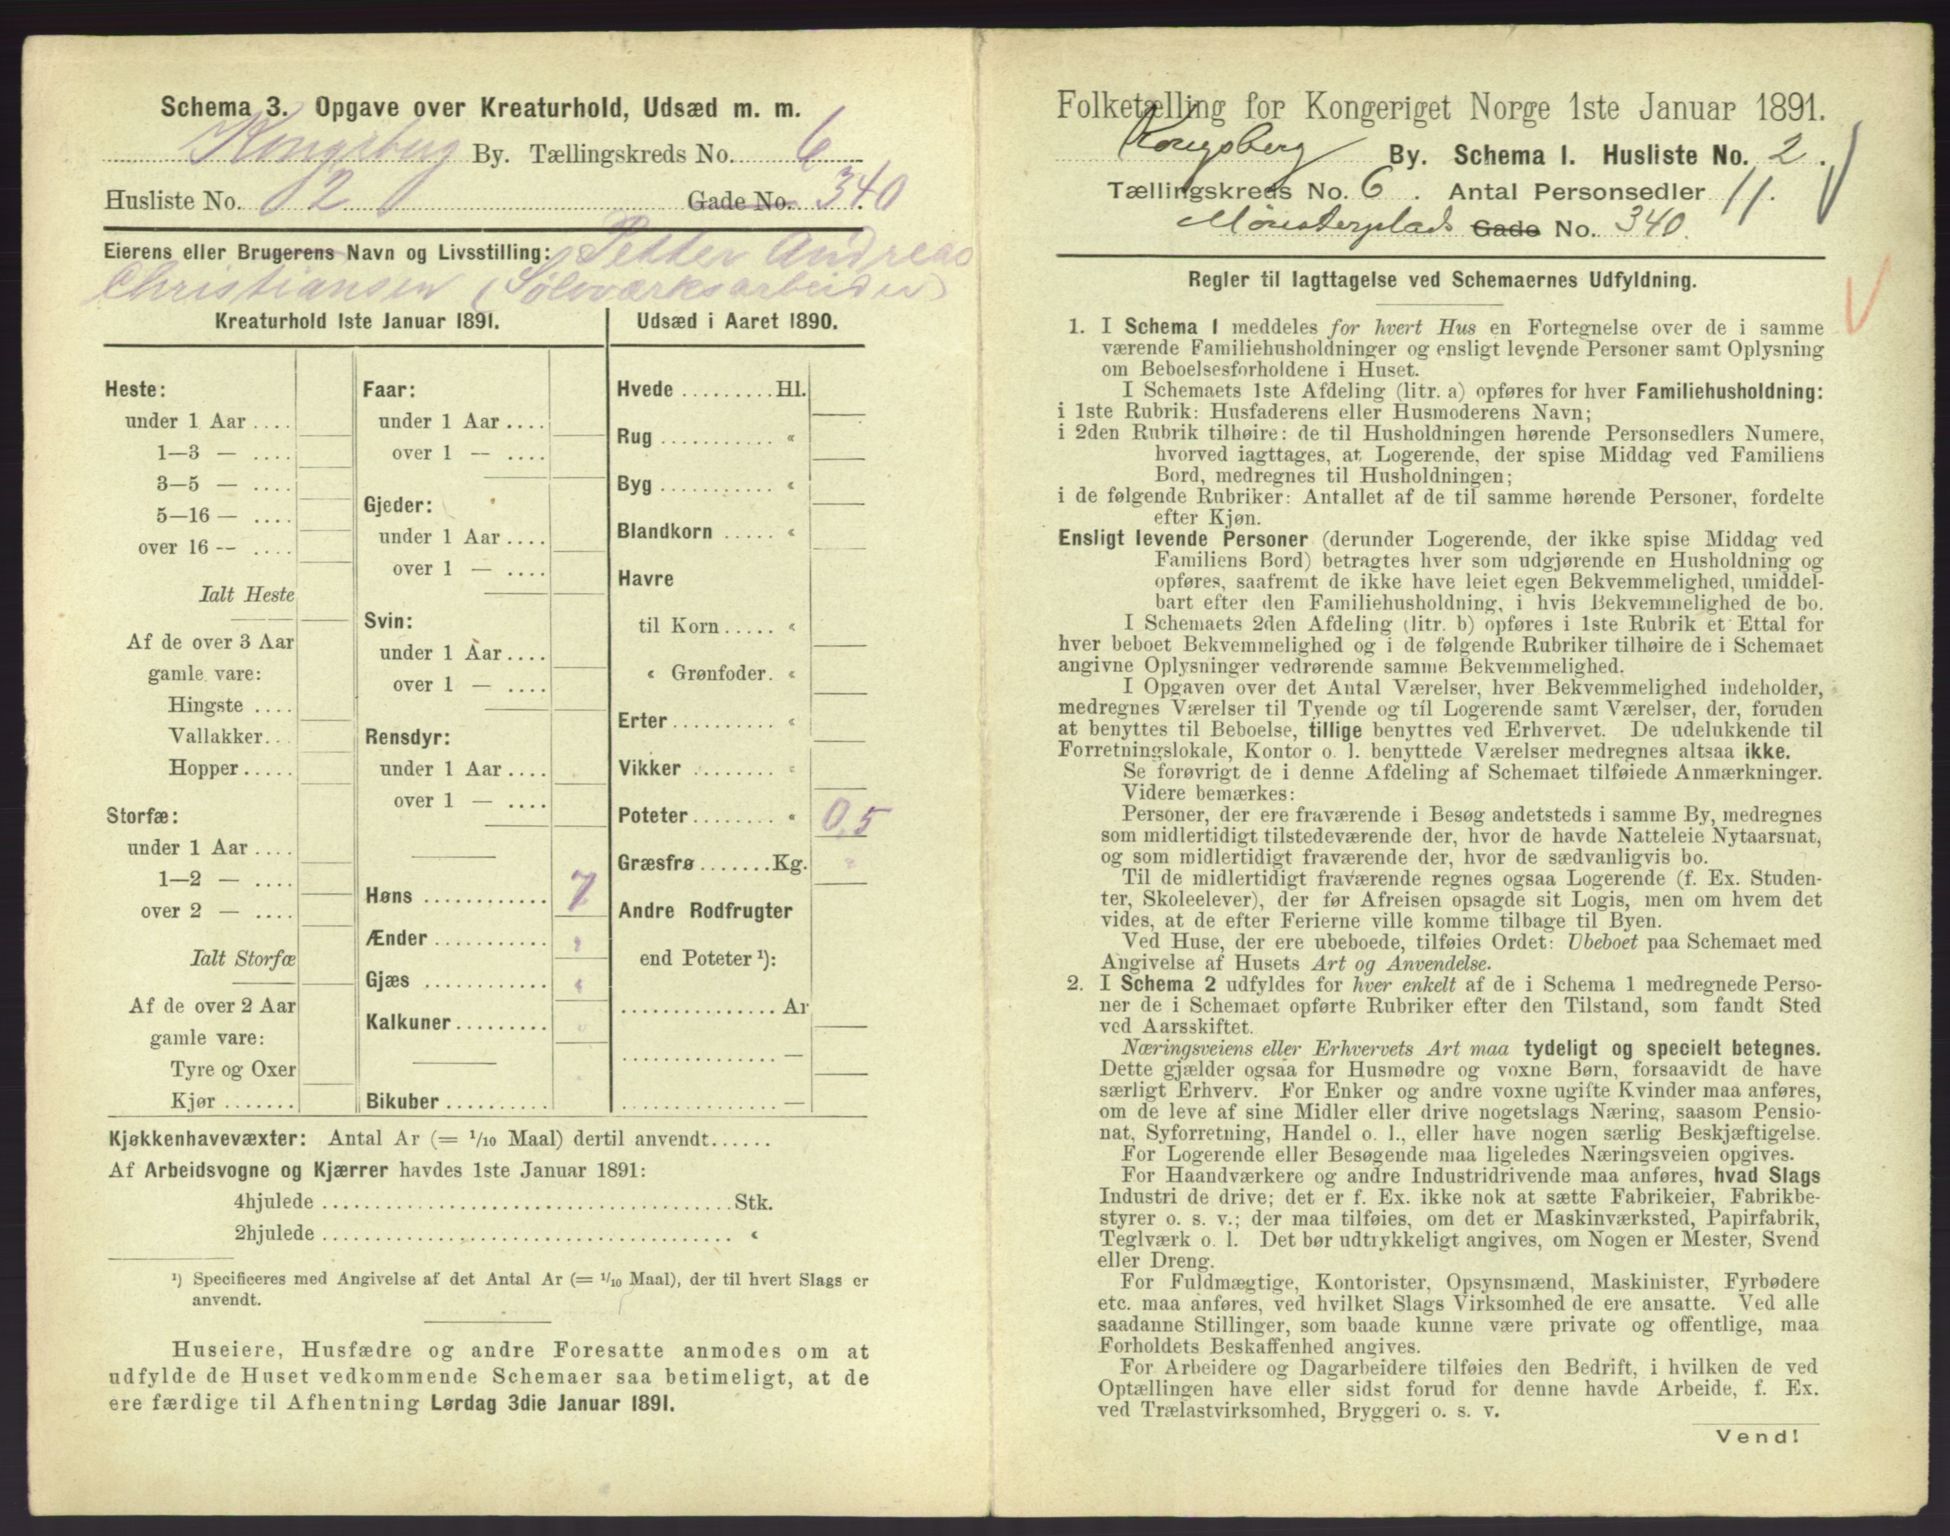 Schema 3. Opgave over Kreaturhold, Udsæd m. m.
Kongsberg By. Tællingskreds No. 6
Husliste No. 2 Gade No. 340
Eierens eller Brugerens Navn og Livsstilling: Petter Andreas
Christiansen (Sølvværksarbeider)
Kreaturhold 1ste Januar 1891.
Heste:
under 1 Aar ....
1—3 — ....
3—5 — ....
5—16 — ....
over 16 -- ....
Ialt Heste
Af de over 3 Aar
gamle vare:
Hingste ....
Vallakker...
Hopper.....
Storfæ:
under 1 Aar ....
1—2 — ....
over 2 — ....
Ialt Storfæ
Af de over 2 Aar
gamle vare:
Tyre og Oxer
Kjør .......
Faar:
under 1 Aar ....
over 1 — ....
Gjeder:
under 1 Aar ....
over 1 — ....
Svin:
under 1 Aar ....
over 1 — ....
Rensdyr:
under 1 Aar ....
over 1 — ....
Høns ............ 7
Ænder ........... "
Gjæs ............ "
Kalkuner ......... "
Bikuber ..........
Udsæd i Aaret 1890.
Hvede ......... Hl.
Rug ........... «
Byg ........... «
Blandkorn ..... «
Havre
til Korn ..... «
« Grønfoder. «
Erter .......... «
Vikker ........ «
Poteter ........ « 0,5
Græsfrø ....... Kg. "
Andre Rodfrugter
end Poteter ¹):
............... Ar
............... —
............... —
Kjøkkenhavevæxter: Antal Ar (= 1/10 Maal) dertil anvendt......
Af Arbeidsvogne og Kjærrer havdes 1ste Januar 1891:
4hjulede ..................................... Stk.
2hjulede ..................................... «
¹) Specificeres med Angivelse af det Antal Ar (= 1/10 Maal), der til hvert Slags er
anvendt.
Huseiere, Husfædre og andre Foresatte anmodes om at
udfylde de Huset vedkommende Schemaer saa betimeligt, at de
ere færdige til Afhentning Lørdag 3die Januar 1891.
Folketælling for Kongeriget Norge 1ste Januar 1891.
Kongsberg By. Schema I. Husliste No. 2.
Tællingskreds No. 6. Antal Personsedler 11.
Mønsterplads Gade No. 340.
Regler til Iagttagelse ved Schemaernes Udfyldning.
1. I Schema I meddeles for hvert Hus en Fortegnelse over de i samme
værende Familiehusholdninger og ensligt levende Personer samt Oplysning
om Beboelsesforholdene i Huset.
I Schemaets 1ste Afdeling (litr. a) opføres for hver Familiehusholdning:
i 1ste Rubrik: Husfaderens eller Husmoderens Navn;
i 2den Rubrik tilhøire: de til Husholdningen hørende Personsedlers Numere,
hvorved iagttages, at Logerende, der spise Middag ved Familiens
Bord, medregnes til Husholdningen;
i de følgende Rubriker: Antallet af de til samme hørende Personer, fordelte
efter Kjøn.
Ensligt levende Personer (derunder Logerende, der ikke spise Middag ved
Familiens Bord) betragtes hver som udgjørende en Husholdning og
opføres, saafremt de ikke have leiet egen Bekvemmelighed, umiddel-
bart efter den Familiehusholdning, i hvis Bekvemmelighed de bo.
I Schemaets 2den Afdeling (litr. b) opføres i 1ste Rubrik et Ettal for
hver beboet Bekvemmelighed og i de følgende Rubriker tilhøire de i Schemaet
angivne Oplysninger vedrørende samme Bekvemmelighed.
I Opgaven over det Antal Værelser, hver Bekvemmelighed indeholder,
medregnes Værelser til Tyende og til Logerende samt Værelser, der, foruden
at benyttes til Beboelse, tillige benyttes ved Erhvervet. De udelukkende til
Forretningslokale, Kontor o. l. benyttede Værelser medregnes altsaa ikke.
Se forøvrigt de i denne Afdeling af Schemaet tilføiede Anmærkninger.
Videre bemærkes:
Personer, der ere fraværende i Besøg andetsteds i samme By, medregnes
som midlertidigt tilstedeværende der, hvor de havde Natteleie Nytaarsnat,
og som midlertidigt fraværende der, hvor de sædvanligvis bo.
Til de midlertidigt fraværende regnes ogsaa Logerende (f. Ex. Studen-
ter, Skoleelever), der før Afreisen opsagde sit Logis, men om hvem det
vides, at de efter Ferierne ville komme tilbage til Byen.
Ved Huse, der ere ubeboede, tilføies Ordet: Ubeboet paa Schemaet med
Angivelse af Husets Art og Anvendelse.
2. I Schema 2 udfyldes for hver enkelt af de i Schema 1 medregnede Perso-
ner de i Schemaet opførte Rubriker efter den Tilstand, som fandt Sted
ved Aarsskiftet.
Næringsveiens eller Erhvervets Art maa tydeligt og specielt betegnes.
Dette gjælder ogsaa for Husmødre og voxne Børn, forsaavidt de have
særligt Erhverv. For Enker og andre voxne ugifte Kvinder maa anføres,
om de leve af sine Midler eller drive nogetslags Næring, saasom Pensio-
nat, Syforretning, Handel o. l., eller have nogen særlig Beskjæftigelse.
For Logerende eller Besøgende maa ligeledes Næringsveien opgives.
For Haandværkere og andre Industridrivende maa anføres, hvad Slags
Industri de drive; det er f. Ex. ikke nok at sætte Fabrikeier, Fabrikbe-
styrer o. s. v.; der maa tilføies, om det er Maskinværksted, Papirfabrik,
Teglværk o. l. Det bør udtrykkeligt angives, om Nogen er Mester, Svend
eller Dreng.
For Fuldmægtige, Kontorister, Opsynsmænd, Maskinister, Fyrbødere
etc. maa anføres, ved hvilket Slags Virksomhed de ere ansatte. Ved alle
saadanne Stillinger, som baade kunne være private og offentlige, maa
Forholdets Beskaffenhed angives.
For Arbeidere og Dagarbeidere tilføies den Bedrift, i hvilken de ved
Optællingen have eller sidst forud for denne havde Arbeide, f. Ex.
ved Trælastvirksomhed, Bryggeri o. s. v.
Vend!